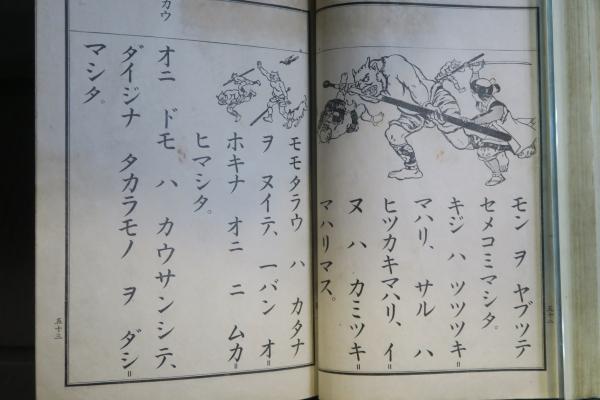 モン ヲ ヤブツテ
セメコミマシタ。
キジ ハ ツツツキ=
マハリ、サル ハ
ヒツカキマハリ、イ=
ヌ ハ カミツキ=
マハリマス。
五十二
モモタラウ ハ カタナ
ヲ ヌイテ、一バン オ=
ホキナ オニ ニ ムカ=
ヒマシタ。
オニ ドモ ハ カウサンシテ、
ダイジナ タカラモノ ヲ ダシ=
マシタ。
カウ
五十三